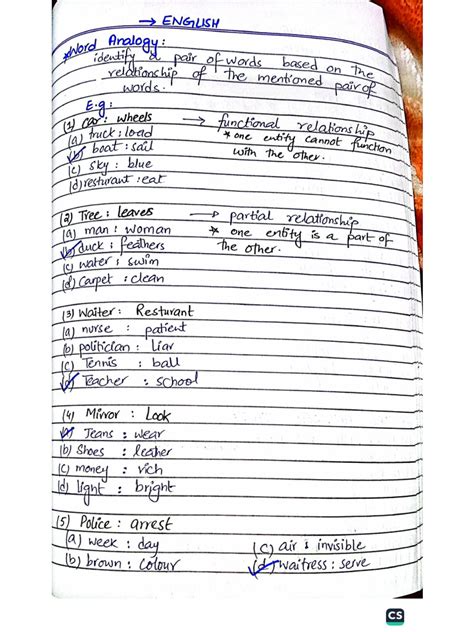 → ENGLISH
*Word Analogy:
identify a pair of words based on the
relationship of the mentioned pair of
words.
E.g:
(1) Car: wheels → functional relationship
(a) truck : load * one entity cannot function
(b) boat : sail with the other.
(c) sky : blue
(d) resturant : eat
(2) Tree : leaves → partial relationship
(a) man : woman * one entity is a part of
(b) duck : feathers the other.
(c) water : swim
(d) carpet : clean
(3) Waiter : Resturant
(a) nurse : patient
(b) politician : liar
(c) Tennis : ball
(d) Teacher : school
(4) Mirror : Look
(a) Jeans : wear
(b) Shoes : leather
(c) money : rich
(d) light : bright
(5) Police : arrest
(a) week : day (c) air : invisible
(b) brown : colour (d) waitress : serve
CS